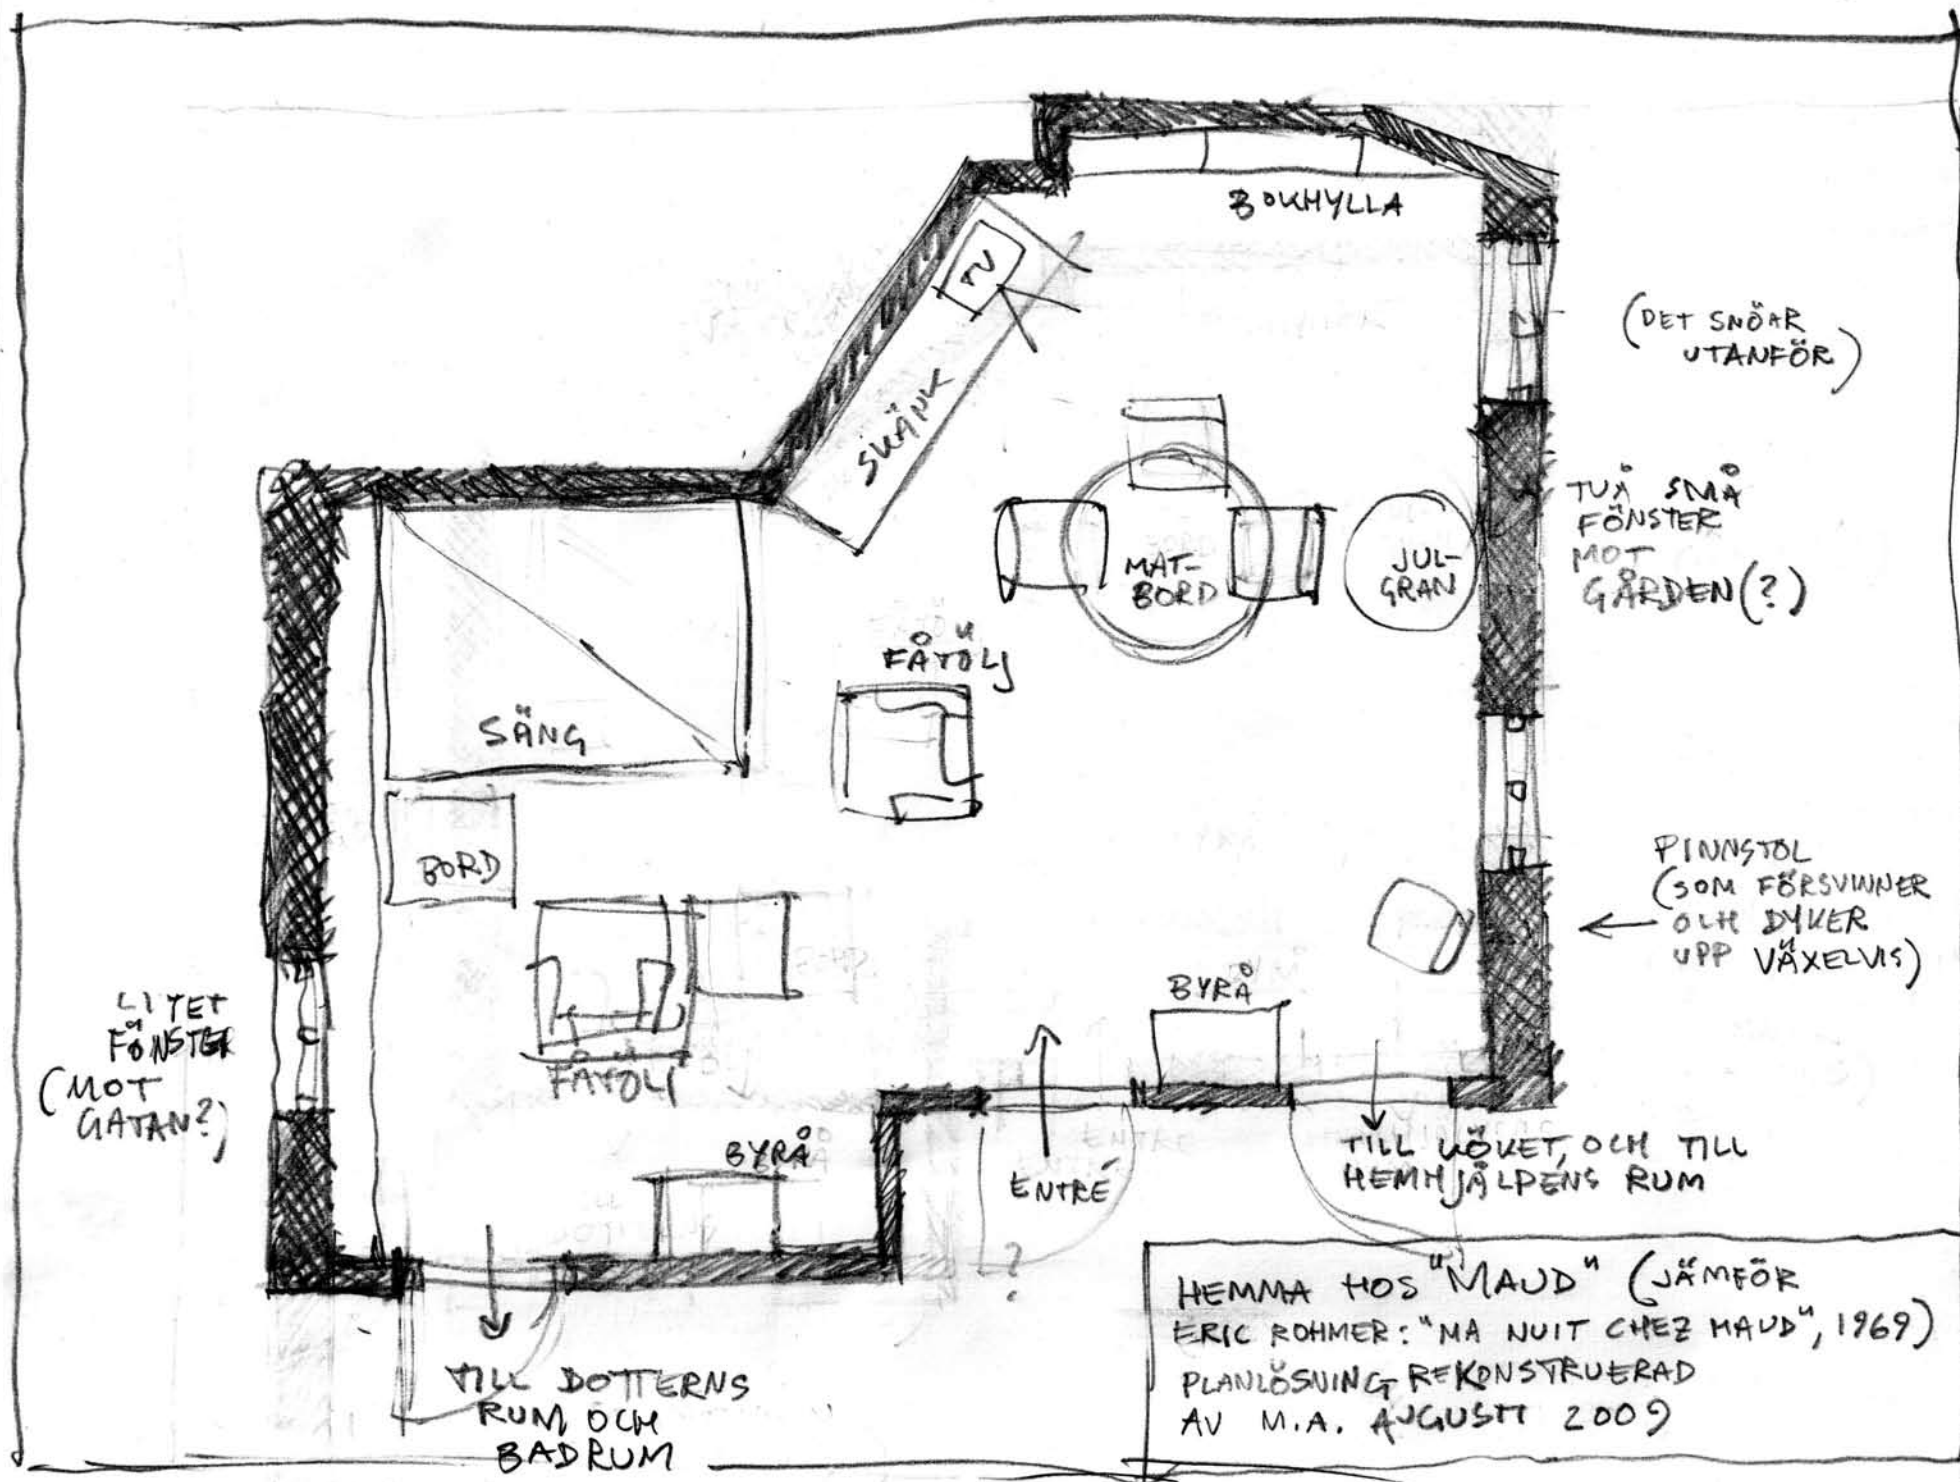 BOKHYLLA
TV
SKÄNK
(DET SNÖAR
UTANFÖR)
TVÅ SMÅ
FÖNSTER
MOT
GÅRDEN(?)
MAT-
BORD
JUL-
GRAN
FÅTÖLJ
SÄNG
BORD
PINNSTOL
(SOM FÖRSVINNER
OCH DYKER
UPP VÄXELVIS)
BYRÅ
LITET
FÖNSTER
(MOT
GATAN?)
FÅTÖLJ
BYRÅ
ENTRÉ
?
TILL KÖKET, OCH TILL
HEMHJÄLPENS RUM
TILL DOTTERNS
RUM OCH
BADRUM
HEMMA HOS "MAUD" (JÄMFÖR
ERIC ROHMER: "MA NUIT CHEZ MAUD", 1969)
PLANLÖSNING REKONSTRUERAD
AV M.A. AUGUSTI 2009